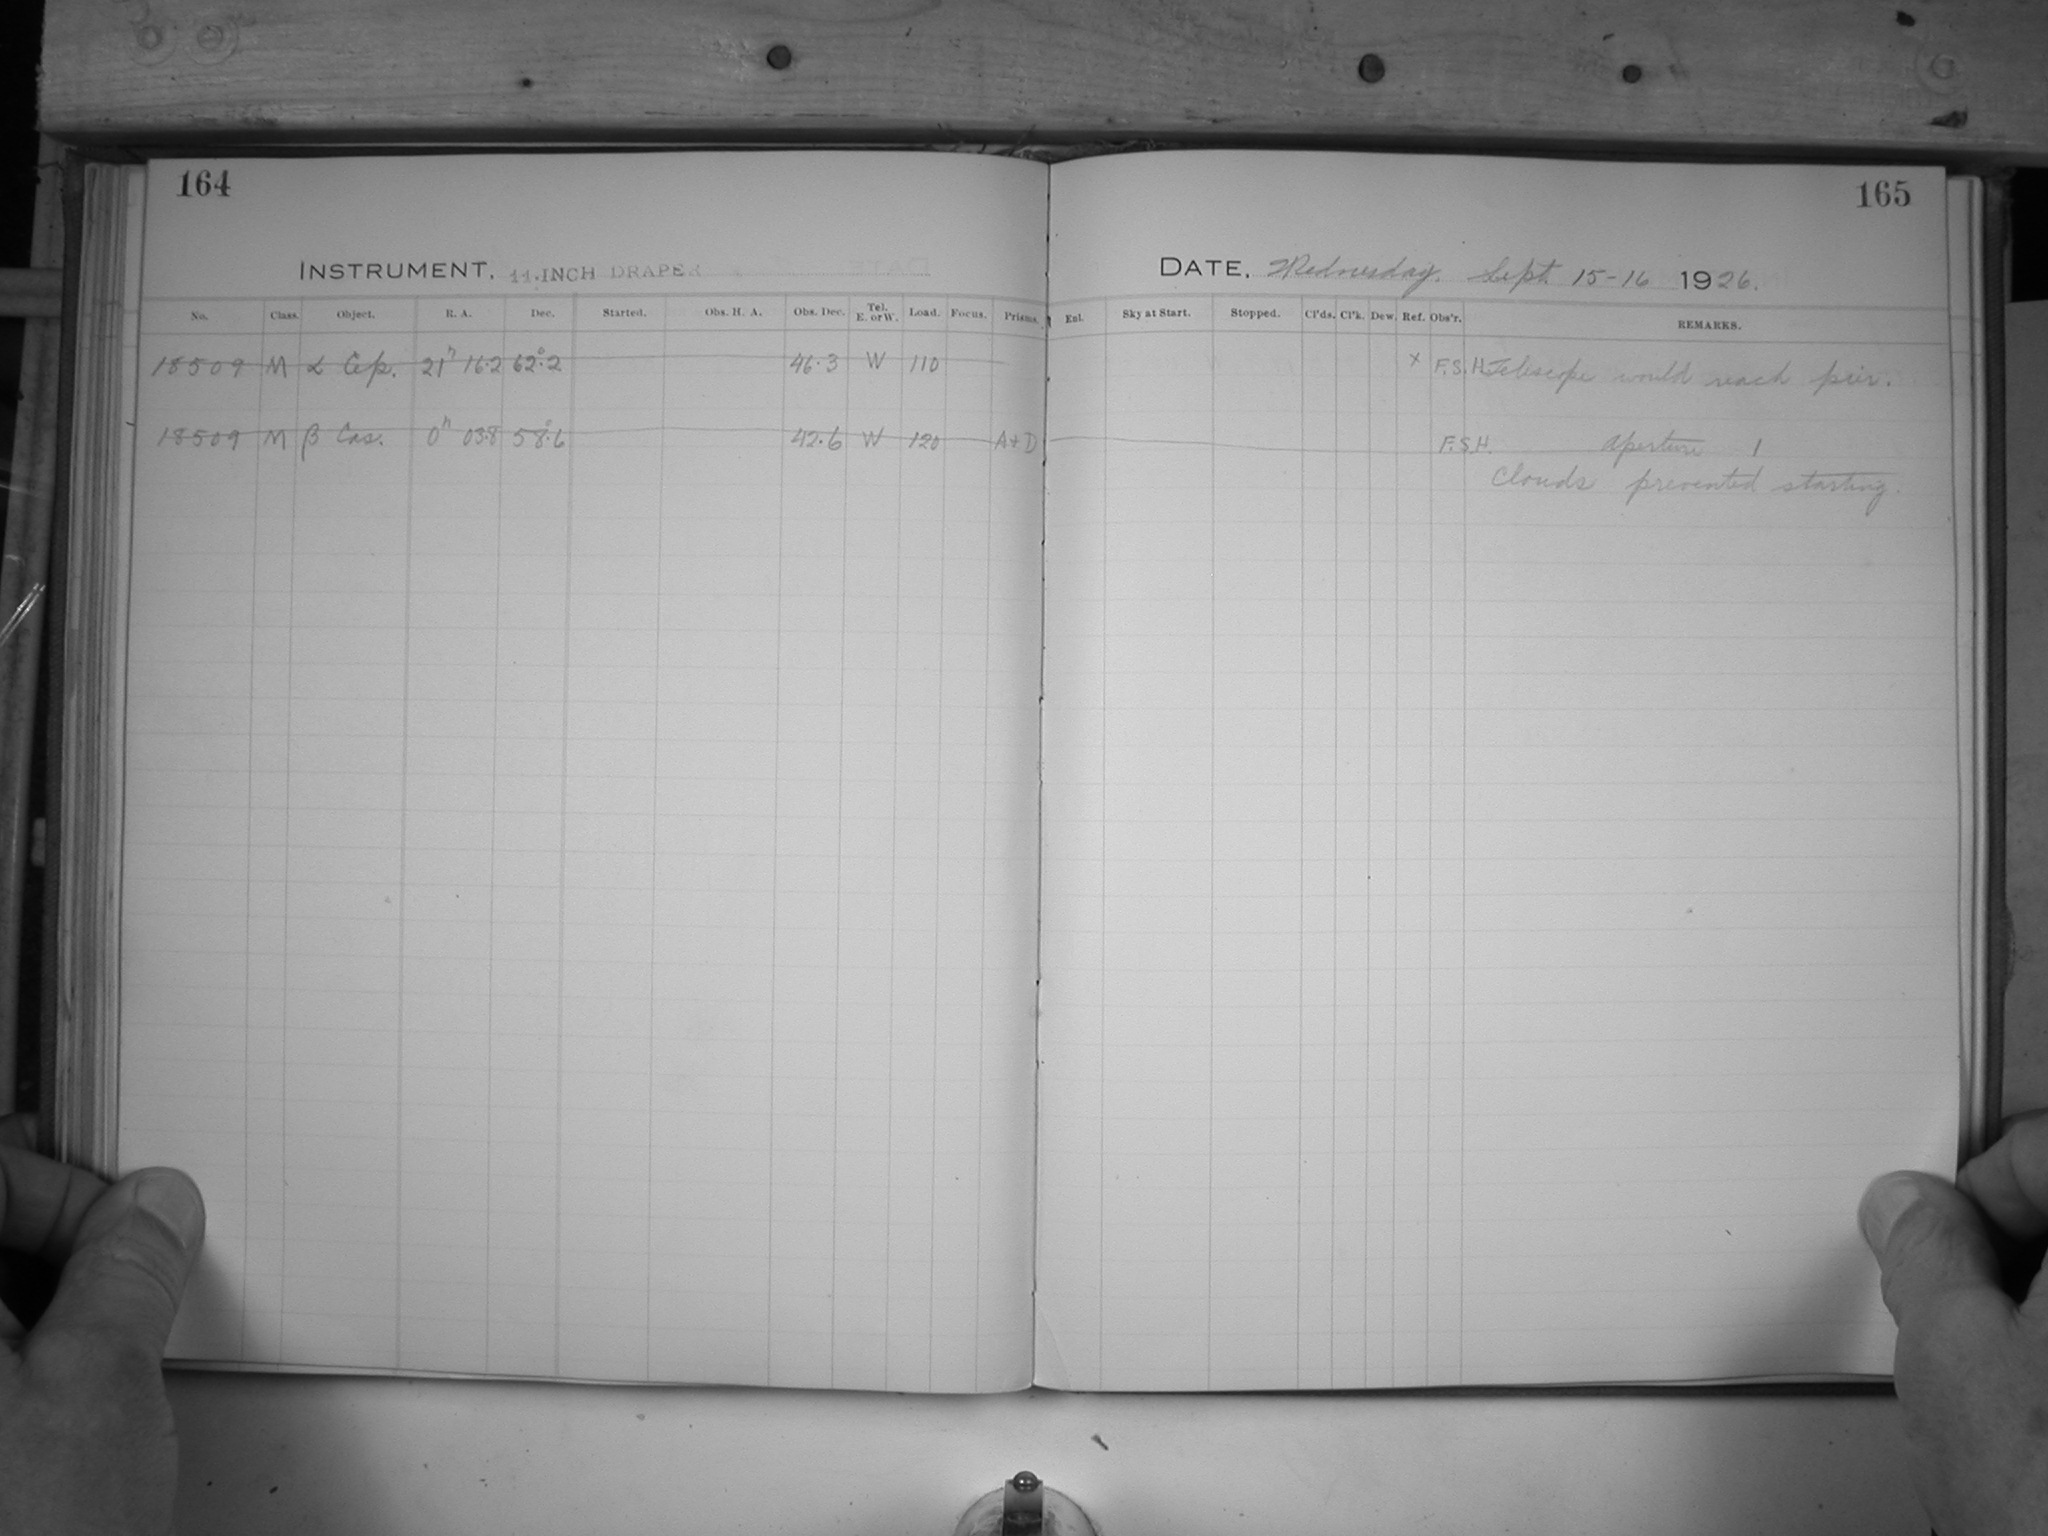 164
INSTRUMENT. 11-INCH DRAPER
No. Class. Object. R. A. Dec. Started. Obs. H. A. Obs. Dec. Tel. E. or W. Load. Focus. Prisms.
18509 M α Cep. 21h 16.2 62°.2 46.3 W 110
18509 M β Cas. 0h 03.8 58°.6 42.6 W 120 A+D
165
DATE. Wednesday. Sept. 15-16 1926.
Enl. Sky at Start. Stopped. Cl'ds. Cl'k. Dew. Ref. Obs'r. REMARKS.
x F.S.H. Telescope would reach pier.
F.S.H. Aperture 1
Clouds prevented starting.